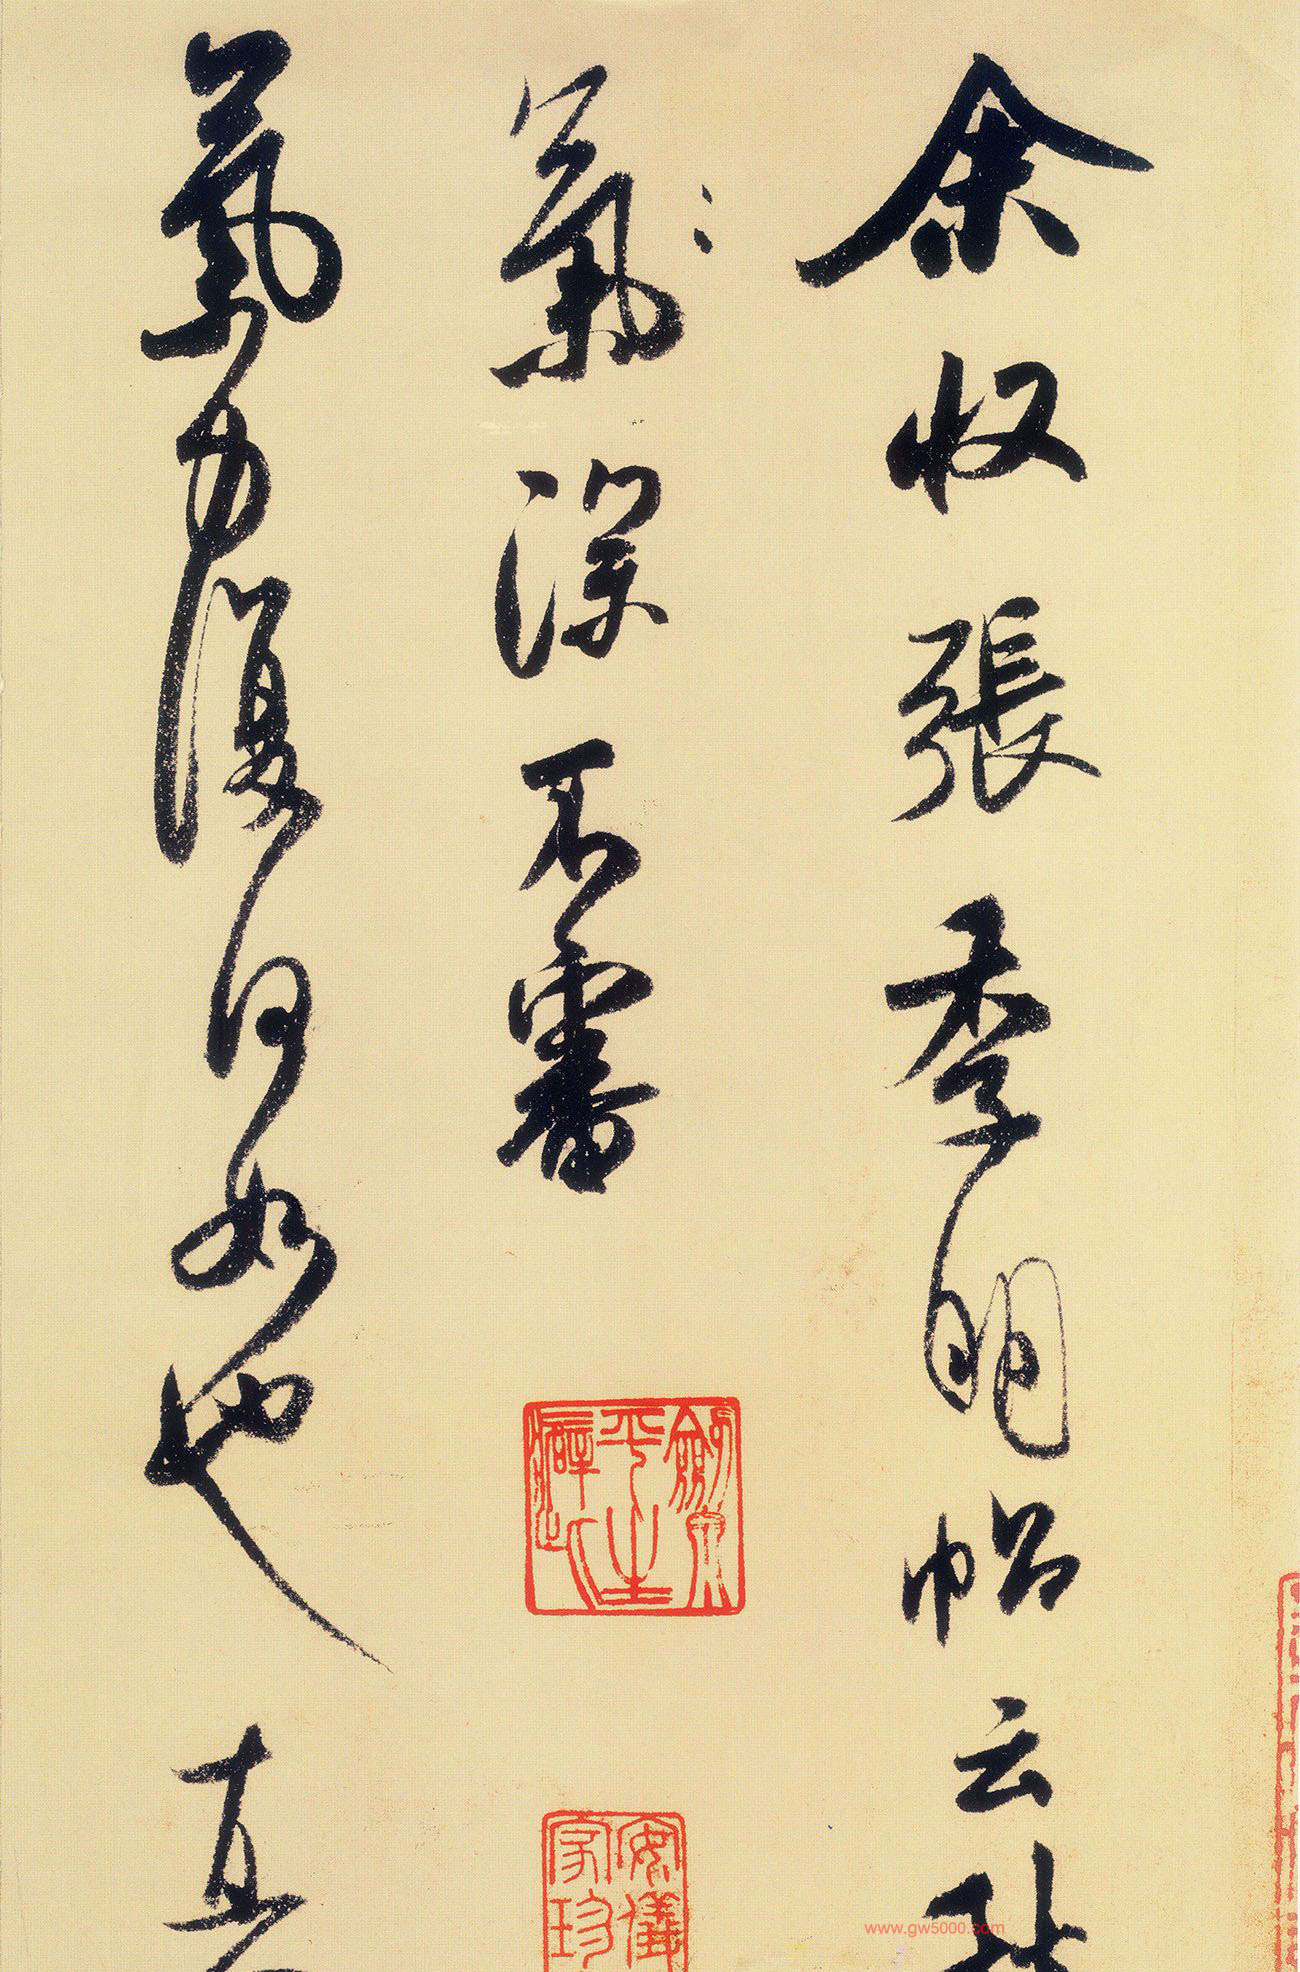 余收張季明帖云秋
氣深不審
氣力復何如也真
安儀
家珍
www.gw5000.com